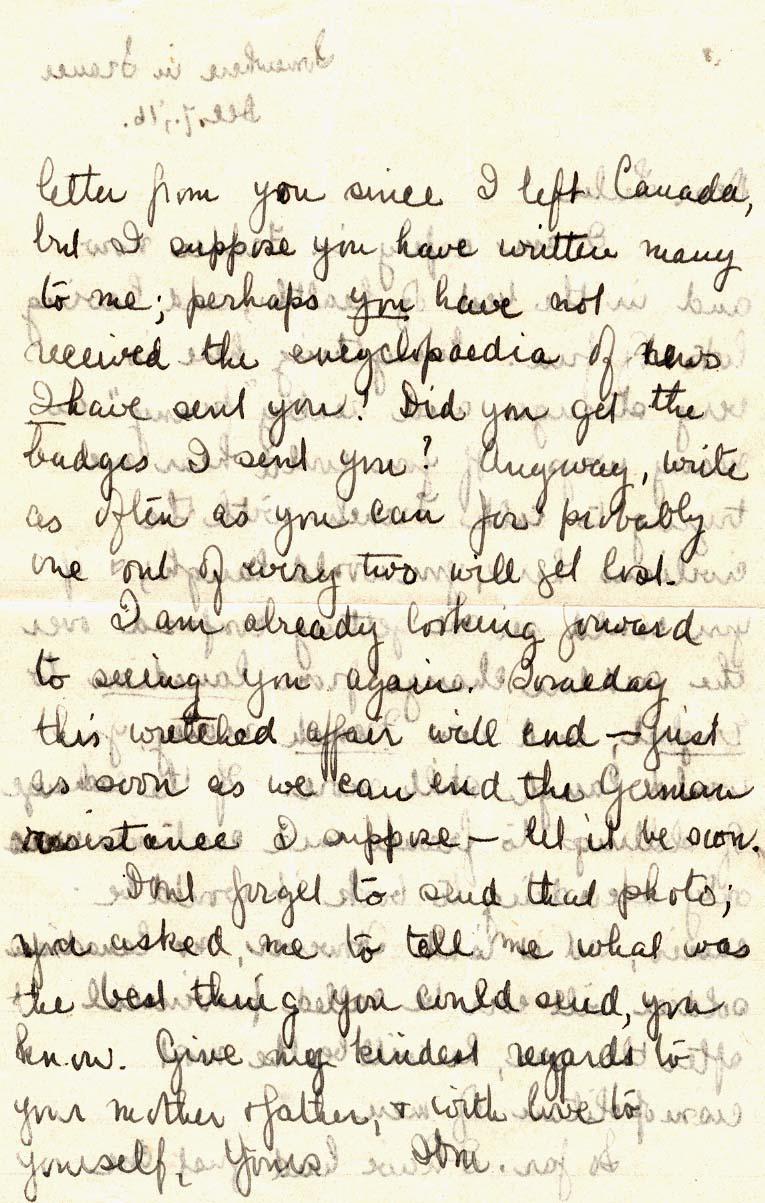 Somewhere in France
Dec. 7, '16.
letter from you since I left Canada,
but I suppose you have written many
to me; perhaps you have not
received the encyclopaedia of news
I have sent you! Did you get the
badges I sent you? Anyway, write
as often as you can for probably
one out of every two will get lost.
I am already looking forward
to seeing you again. Someday
this wretched affair will end — just
as soon as we can end the German
resistance I suppose — let it be soon.
Dont forget to send that photo;
you asked me to tell me what was
the best thing you could send, you
know. Give my kindest regards to
your mother & father, & with love to
yourself, Yours